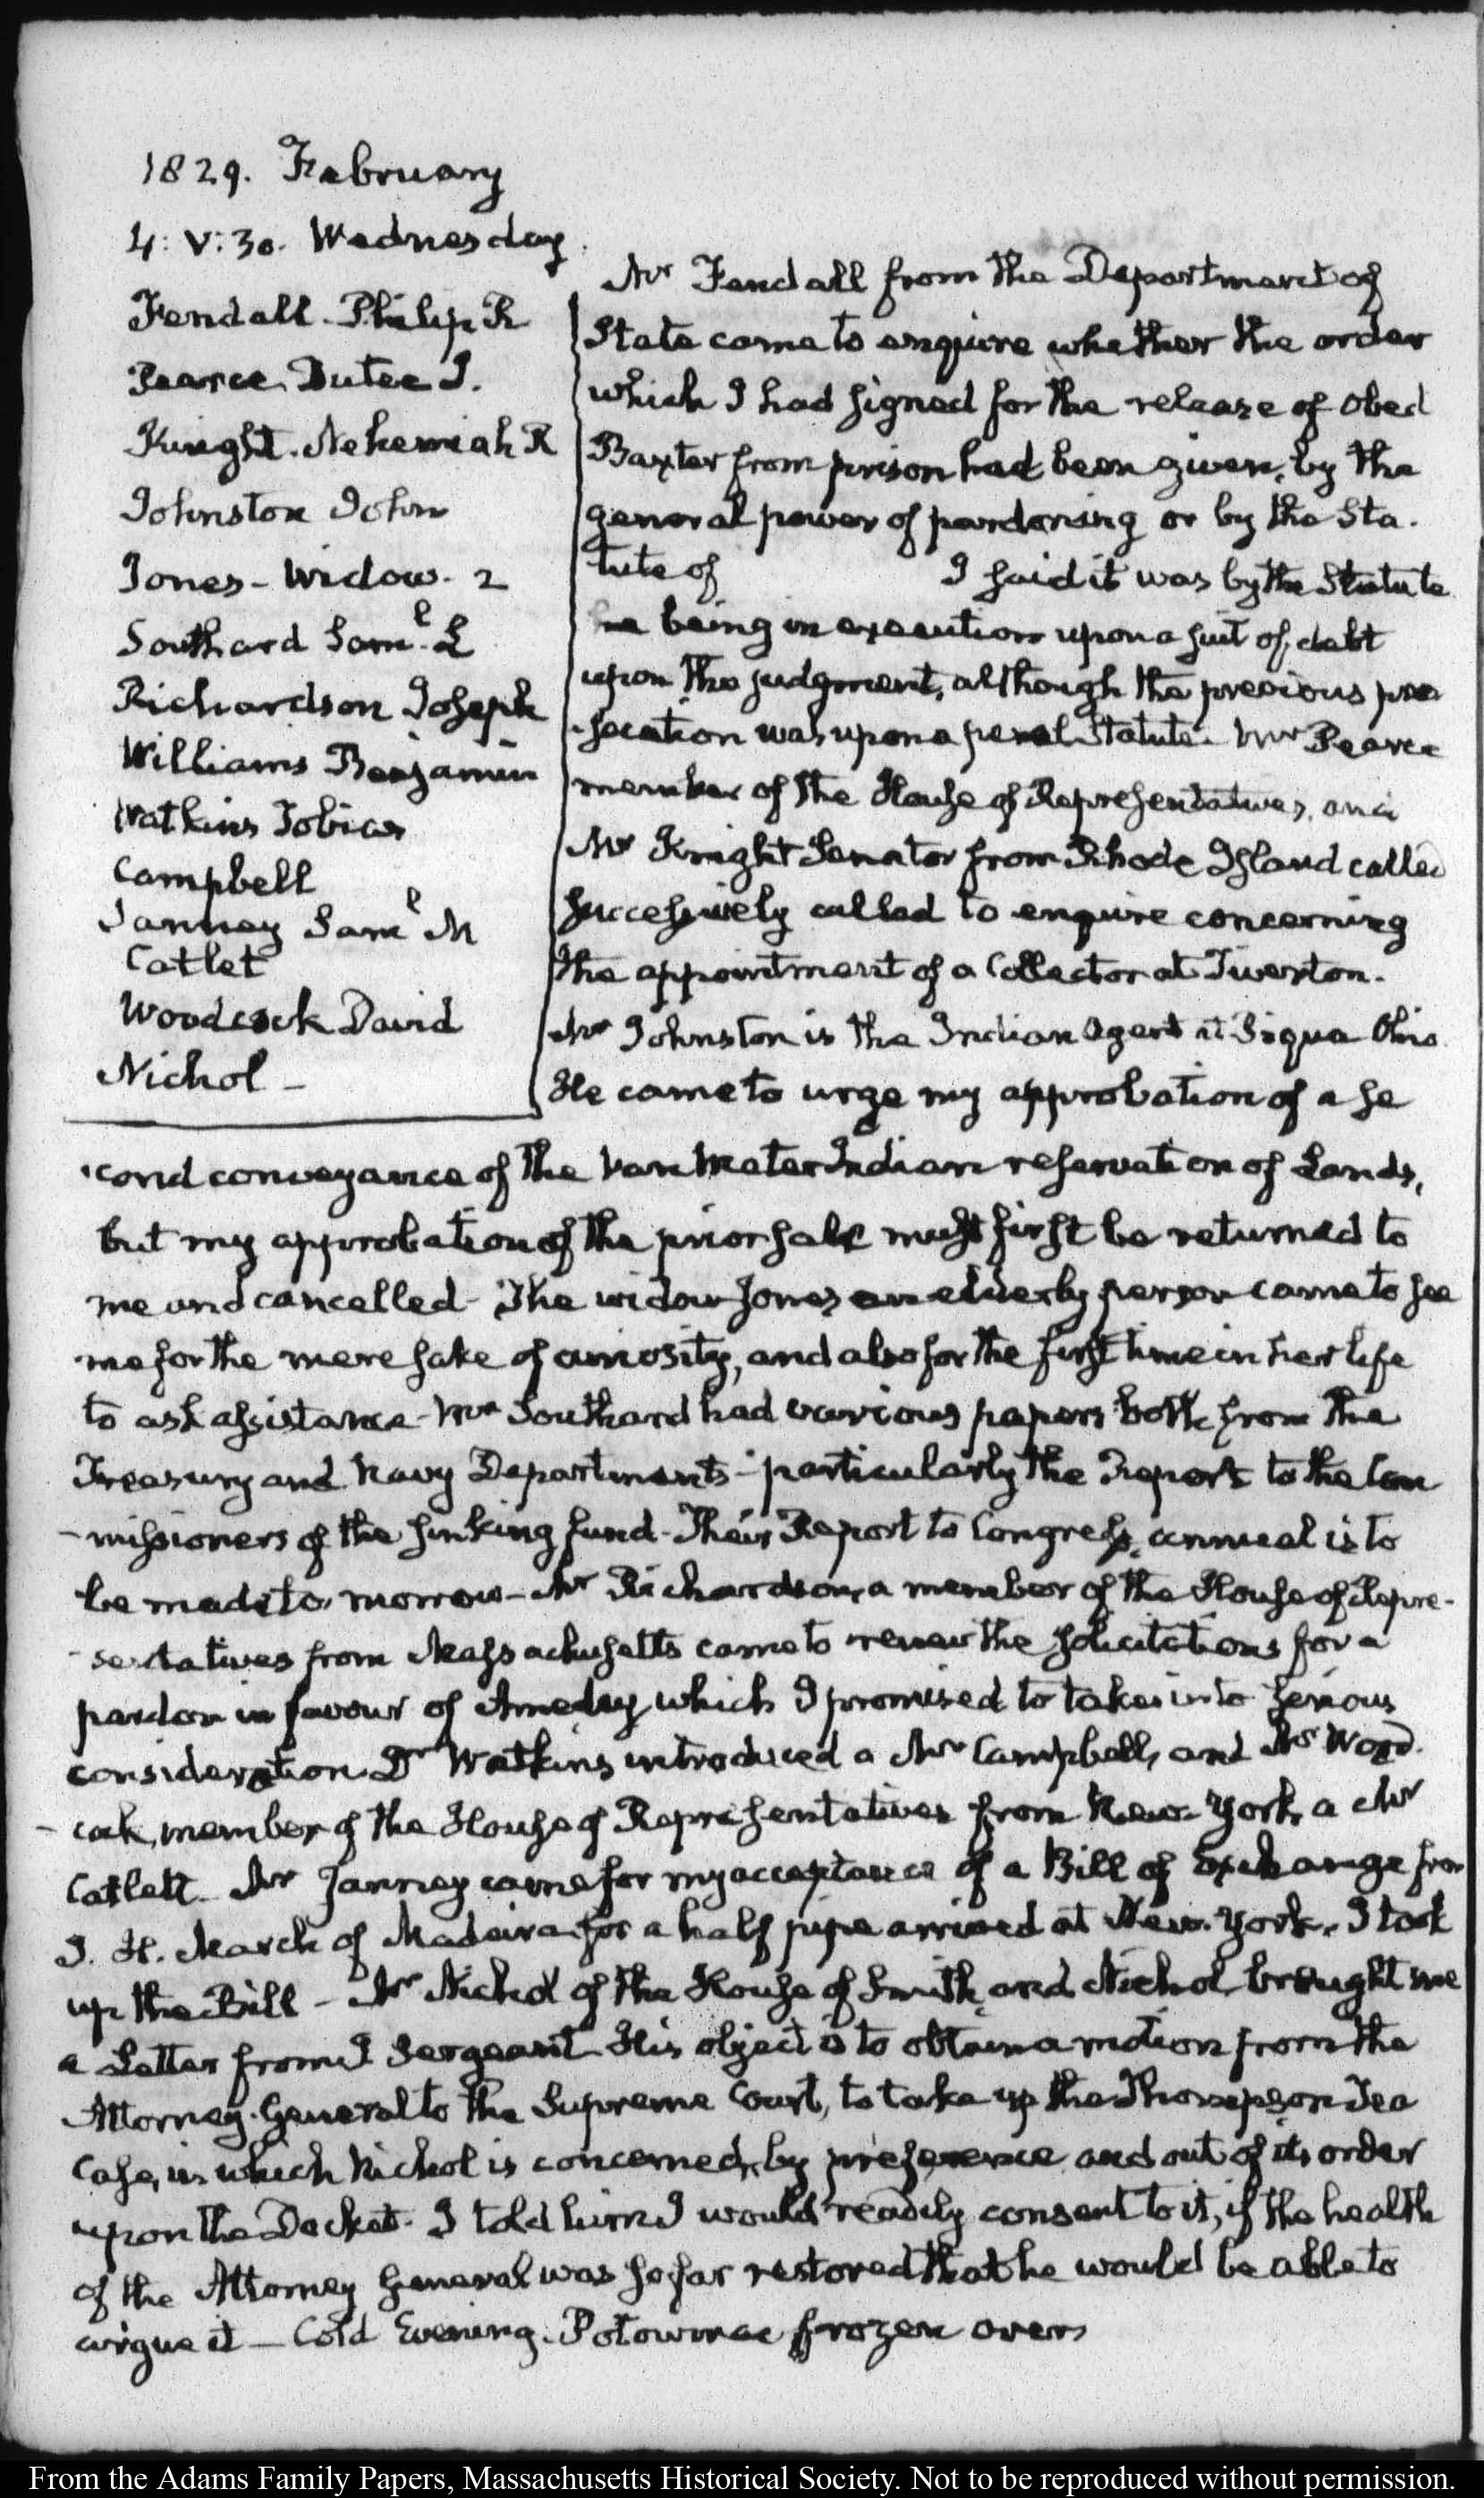 1829. February
4. V:30. Wednesday.
Fendall. Philip R
Pearce. Dutee J.
Knight. Nehemiah R
Johnston John
Jones - Widow. 2
Southard Saml. L
Richardson Joseph
Williams Benjamin
Watkins Tobias
Campbell
Janney Saml M
Catlet
Woodcock David
Nichol -
Mr Fendall from the Department of
State came to enquire whether the order
which I had signed for the release of Obed
Baxter from prison had been given, by the
general power of pardoning or by the Sta-
tute of I said it was by the Statute
he being in execution upon a suit of debt
upon the judgment, although the previous pro
-secution was upon a penal Statute. Mr Pearce
member of the House of Representatives, and
Mr Knight Senator from Rhode Island called
successively called to enquire concerning
the appointment of a Collector at Tiverton.
Mr Johnston is the Indian Agent at Piqua Ohio.
He came to urge my approbation of a se
-cond conveyance of the Van Meter Indian reservation of Lands,
but my approbation of the prior sale must first be returned to
me and cancelled - The widow Jones an elderly person came to see
me for the mere sake of curiosity, and also for the first time in her life
to ask assistance - Mr Southard had various papers both from the
Treasury and Navy Departments - particularly the Report to the Com
-missioners of the sinking fund - Their Report to Congress, annual is to
be made to-morrow - Mr Richardson, a member of the House of Repre-
-sentatives from Massachusetts came to renew the solicitations for a
pardon in favour of Ameday which I promised to take into serious
consideration. Dr Watkins introduced a Mr Campbell, and Mr Wood-
-cock, member of the House of Representatives from New-York, a Mr
Catlett - Mr Janney came for my acceptance of a Bill of Exchange from
J. H. March of Madeira for a half pipe arrived at New-York. I took
up the Bill - Mr Nichol of the House of Smith and Nichol, brought me
a Letter from J Sergeant. His object is to obtain a motion from the
Attorney-General to the Supreme Court, to take up the Thompson Tea
Case, in which Nichol is concerned, by preference and out of its order
upon the Docket. I told him I would readily consent to it, if the health
of the Attorney General was so far restored that he would be able to
argue it - Cold Evening. Potowmac frozen over.
From the Adams Family Papers, Massachusetts Historical Society. Not to be reproduced without permission.